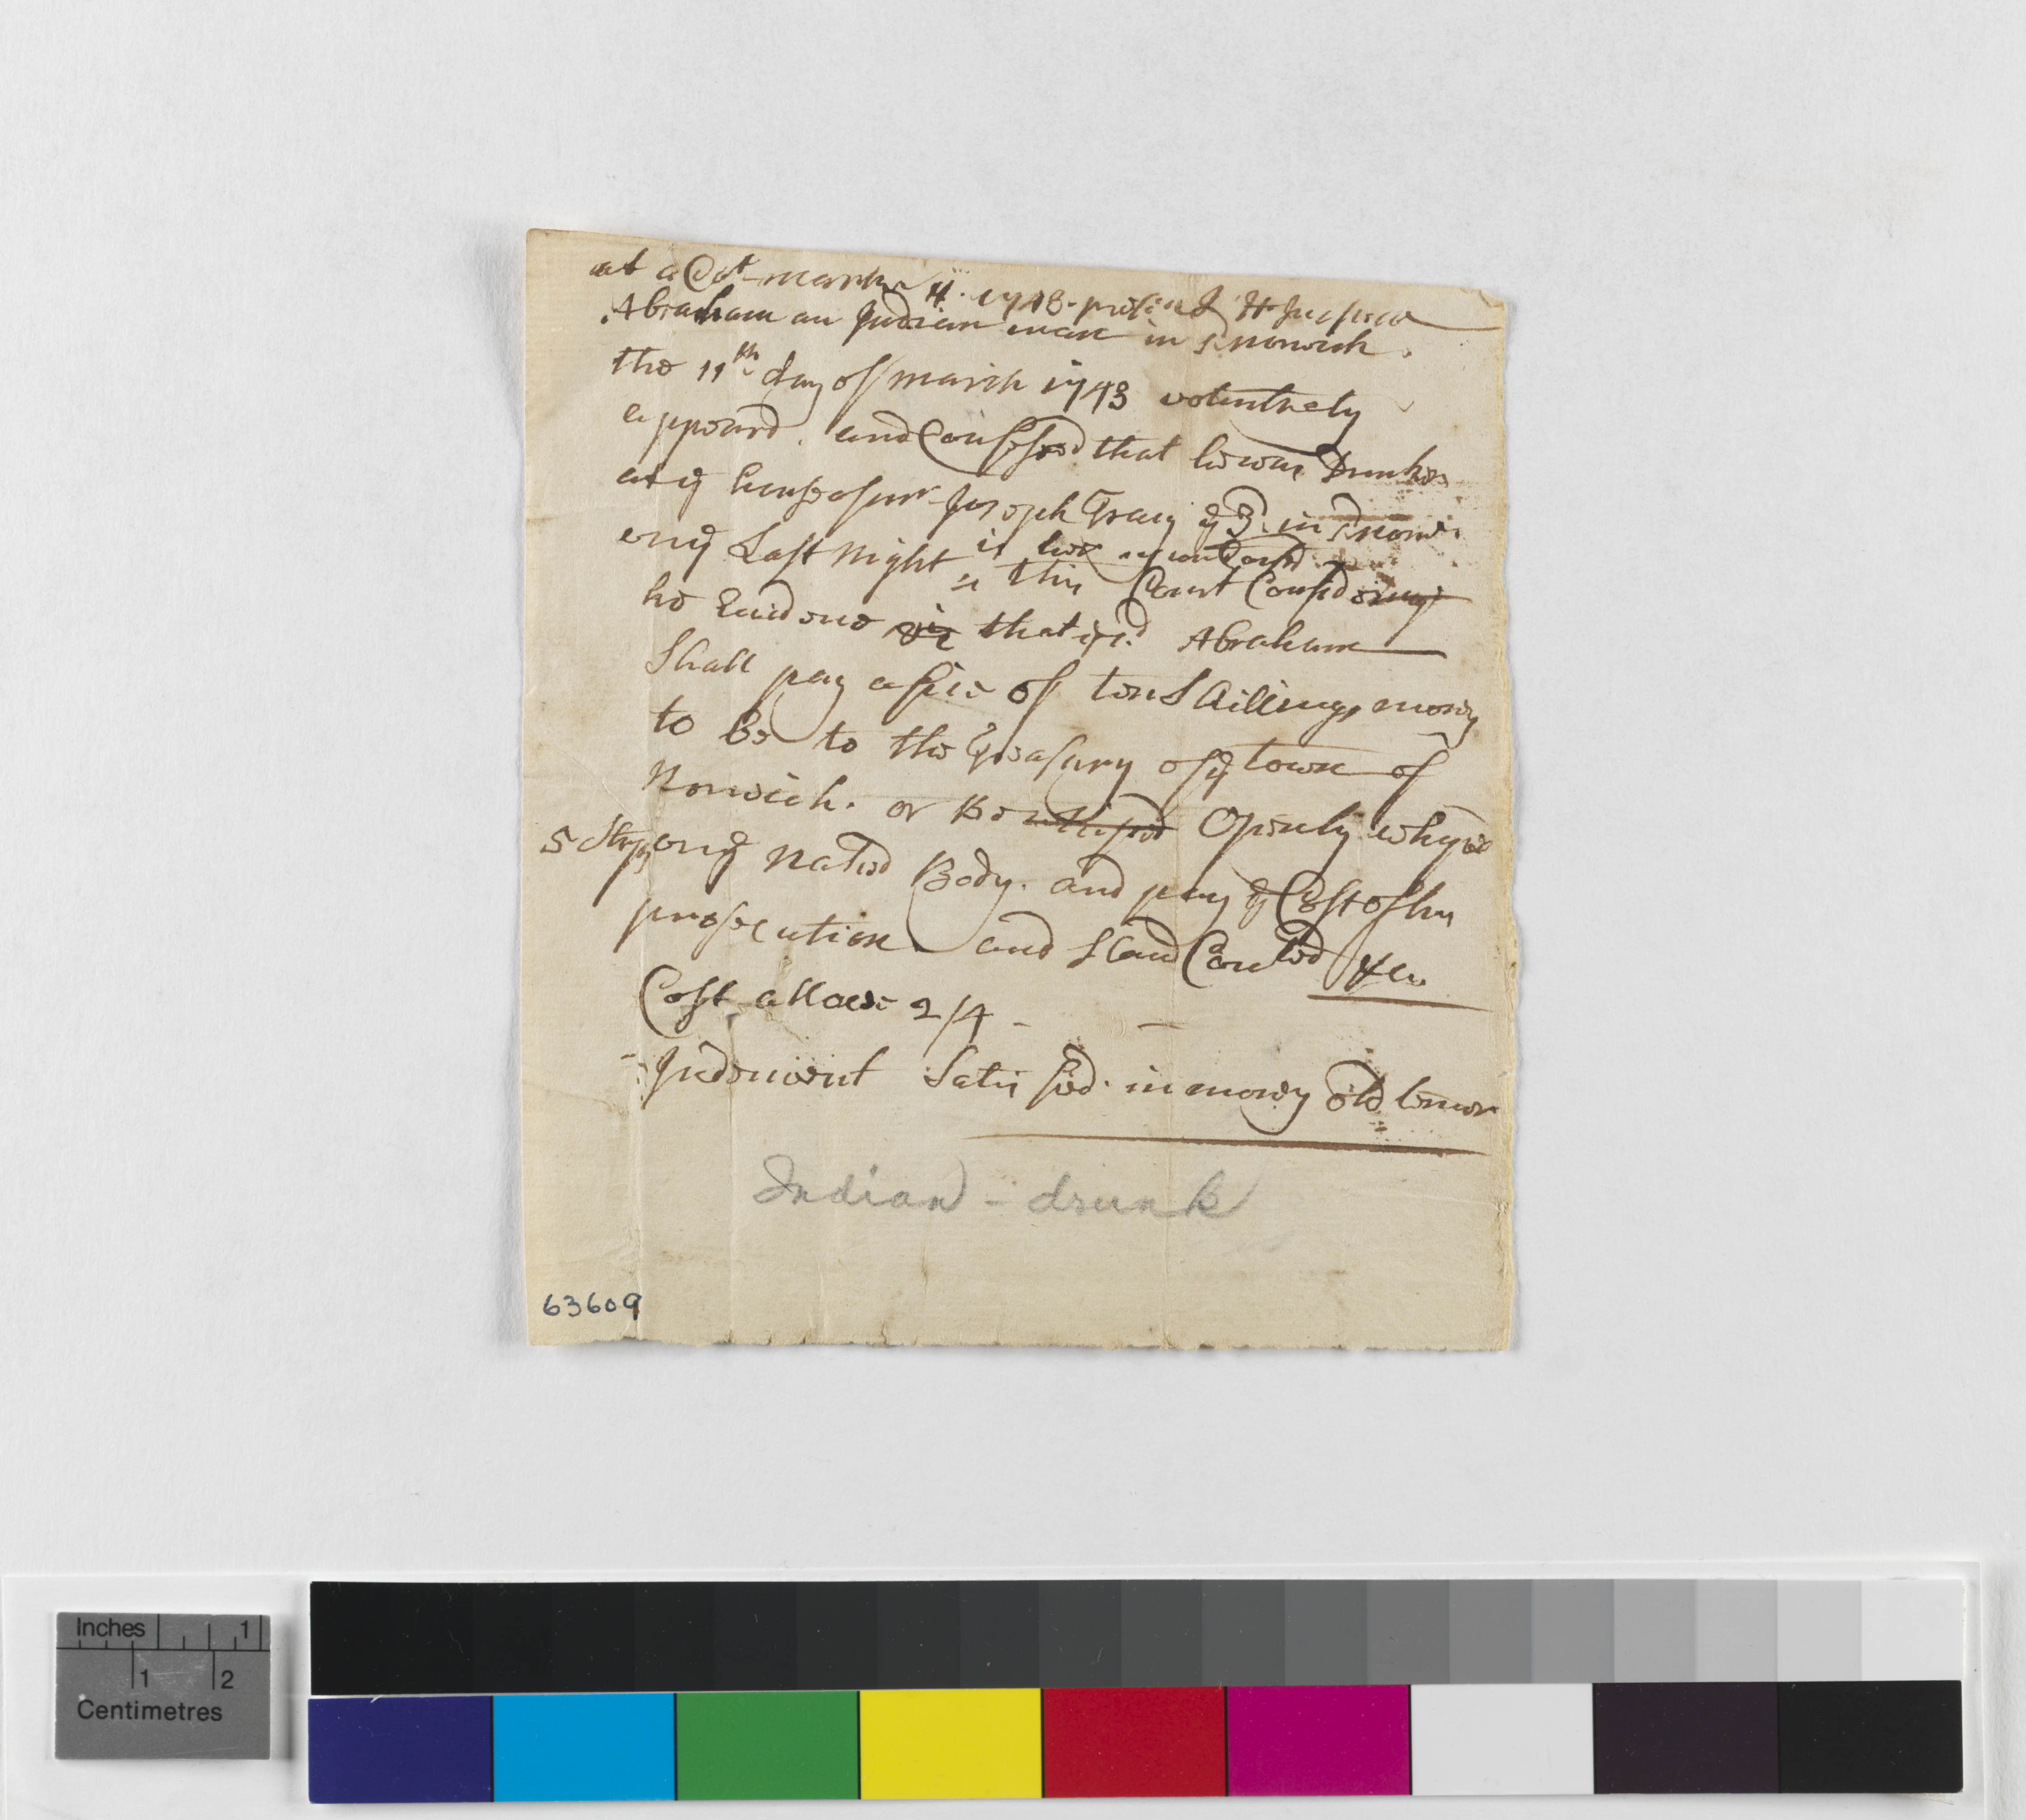 at a Cot march 11. 1743. present
Abraham an Indian man in sd norwich.
the 11th day of march 1743 volentrely
appeard. and Confessed that he was Drunken
at ye house of mr Joseph Tracy ye 3. in sd norw.
on ye Last night
in this Court Considering
he Evidenc that ye sd Abraham
Shall pay a fine of ten Shillings money
to Be to the Treasury of ye town of
Norwich. or Be whiped Openly whiped
5 Strips on ye naked Body. and pay ye Cost of his
prosecution and stand Comted
Cost allowd 2/4
Judment Satisfied. in money old tenor
Indian - drunk
63609
Inches 1
1 2
Centimetres